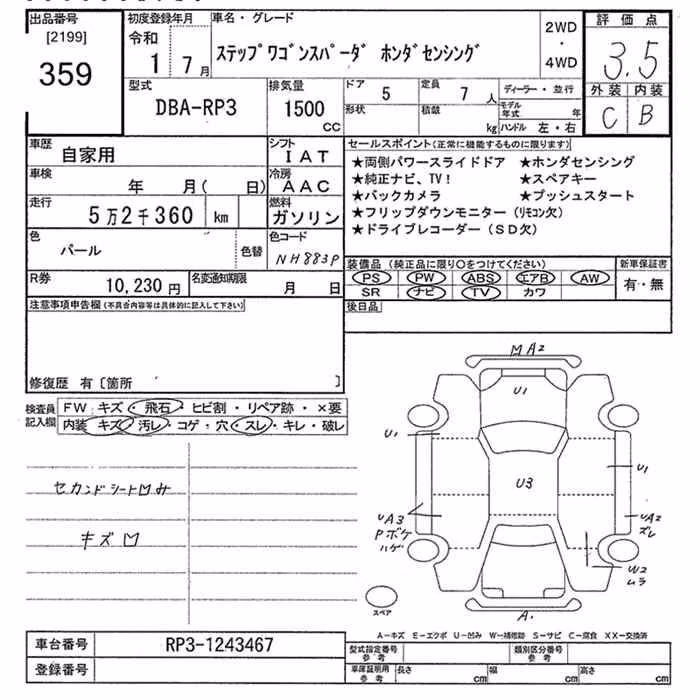 出品番号 初度登録年月 車名・グレード 2WD 評価点
[2199] 令和 ・
359 1 7月 ステップワゴンスパーダ ホンダセンシング 4WD 3.5
型式 排気量 ドア 5 定員 7人 ディーラー・並行 外装 内装
DBA-RP3 1500 cc 形状 積載 kg モデル年式 年 C B
ハンドル 左・右
車歴 自家用 シフト IAT セールスポイント(正常に機能するものに限ります)
車検 年 月( 日) 冷房 AAC ★両側パワースライドドア ★ホンダセンシング
走行 5万2千360 km 燃料 ガソリン ★純正ナビ、TV! ★スペアキー
★バックカメラ ★プッシュスタート
★フリップダウンモニター(リモコン欠)
★ドライブレコーダー(SD欠)
色 パール 色替 色コード NH883P
装備品(純正品に限り○をつけてください) 新車保証書
R券 10,230円 名変通知期限 月 日 PS PW ABS エアB AW 有・無
SR ナビ TV カワ
注意事項申告欄(不具合内容等は具体的に記入して下さい) 後日品
修復歴 有〔箇所 〕
検査員記入欄 FW キズ・飛石・ヒビ割・リペア跡・×要
内装 キズ・汚レ・コゲ・穴・スレ・キレ・破レ
セカンドシート凹み
キズ凹
MA2
U1
U1
U3
U1
UA3
Pボケ
ハゲ
UA2
ズレ
W2
ムラ
A.
スペア
A―キズ E―エクボ U―凹み W―補修跡 S―サビ C―腐食 XX―交換済
車台番号 RP3-1243467 型式指定番号参考 類別区分番号参考
登録番号 車庫証明用参考 長さ cm 幅 cm 高さ cm